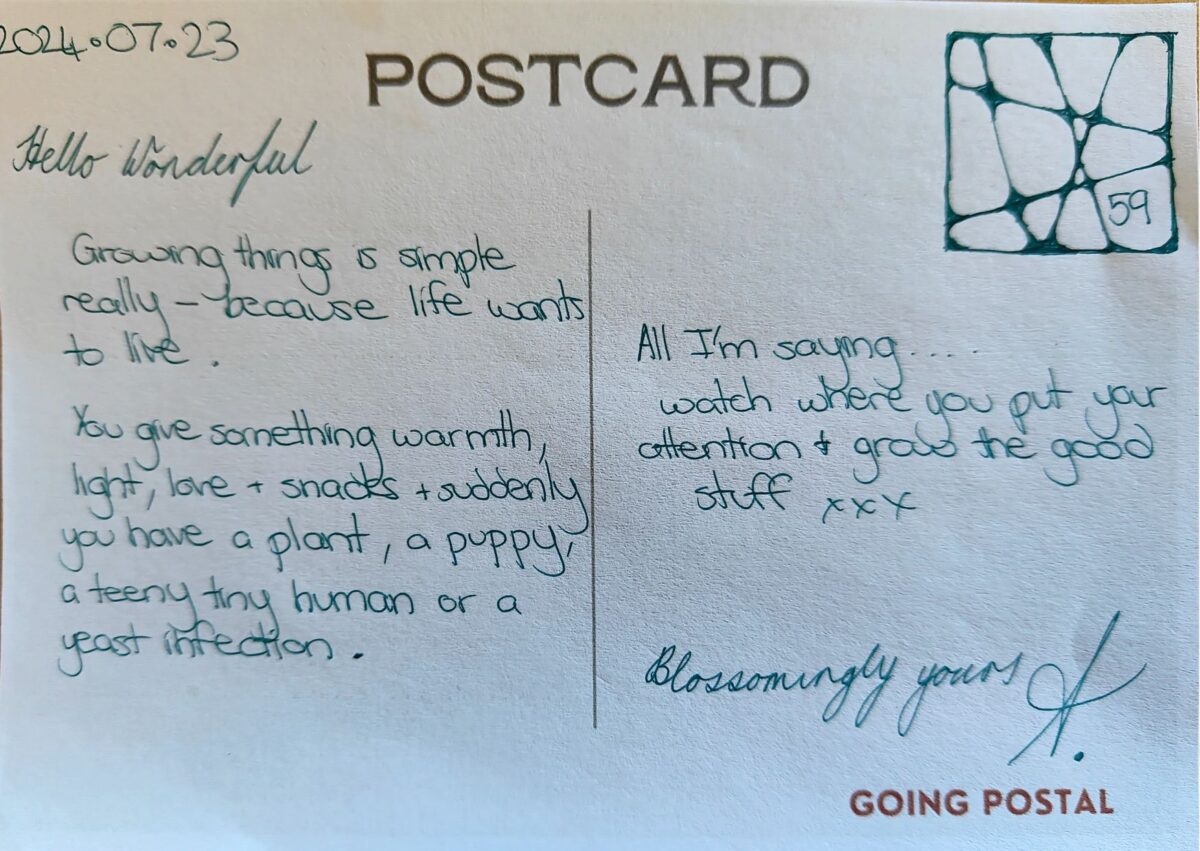 2024.07.23
POSTCARD
Hello Wonderful
59
Growing things is simple
really - because life wants
to live.
You give something warmth,
light, love + snacks + suddenly
you have a plant, a puppy,
a teeny tiny human or a
yeast infection.
All I'm saying....
watch where you put your
attention + grow the good
stuff xxx
Blossomingly yours
A.
GOING POSTAL